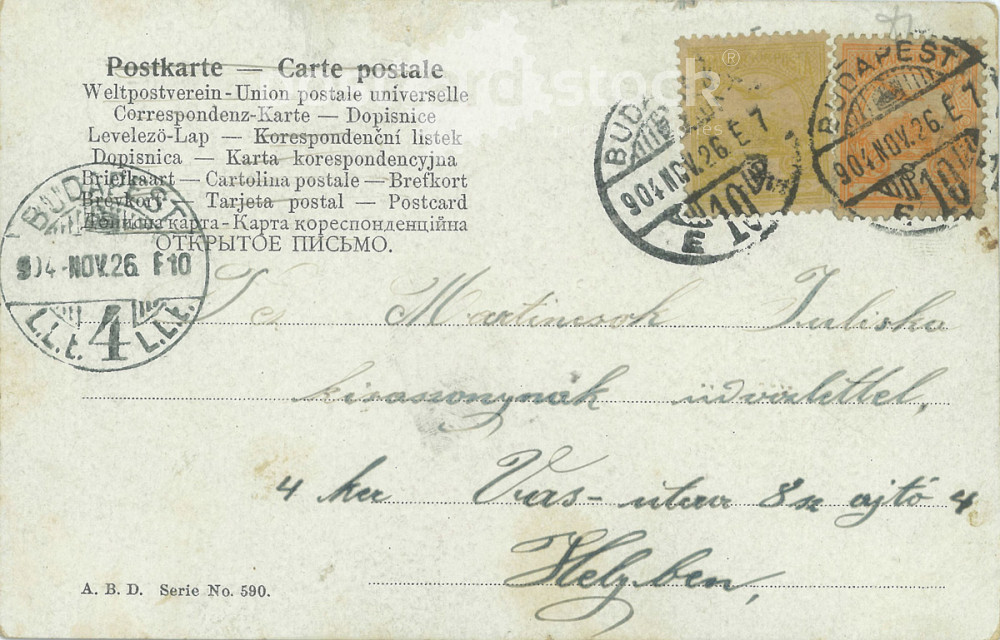 Postkarte — Carte postale
Weltpostverein - Union postale universelle
Correspondenz-Karte — Dopisnice
Levelezö-Lap — Korespondenční listek
Dopisnica — Karta korespondencyjna
Briefkaart — Cartolina postale — Brefkort
Brevkort — Tarjeta postal — Postcard
Дописна карта - Карта кореспонденційна
ОТКРЫТОЕ ПИСЬМО.
BUDAPEST
904 NOV. 26. E 7
10
BUDAPEST
904 NOV. 26. E 7
10
BUDAPEST
904 - NOV. 26. F 10
L.L.t. 4 L.L.t.
Martincsok Juliska
kisasszonynak üdvözlettel,
4 ker Vas- utca 8 sz ajtó 4
Helyben,
A. B. D. Serie No. 590.